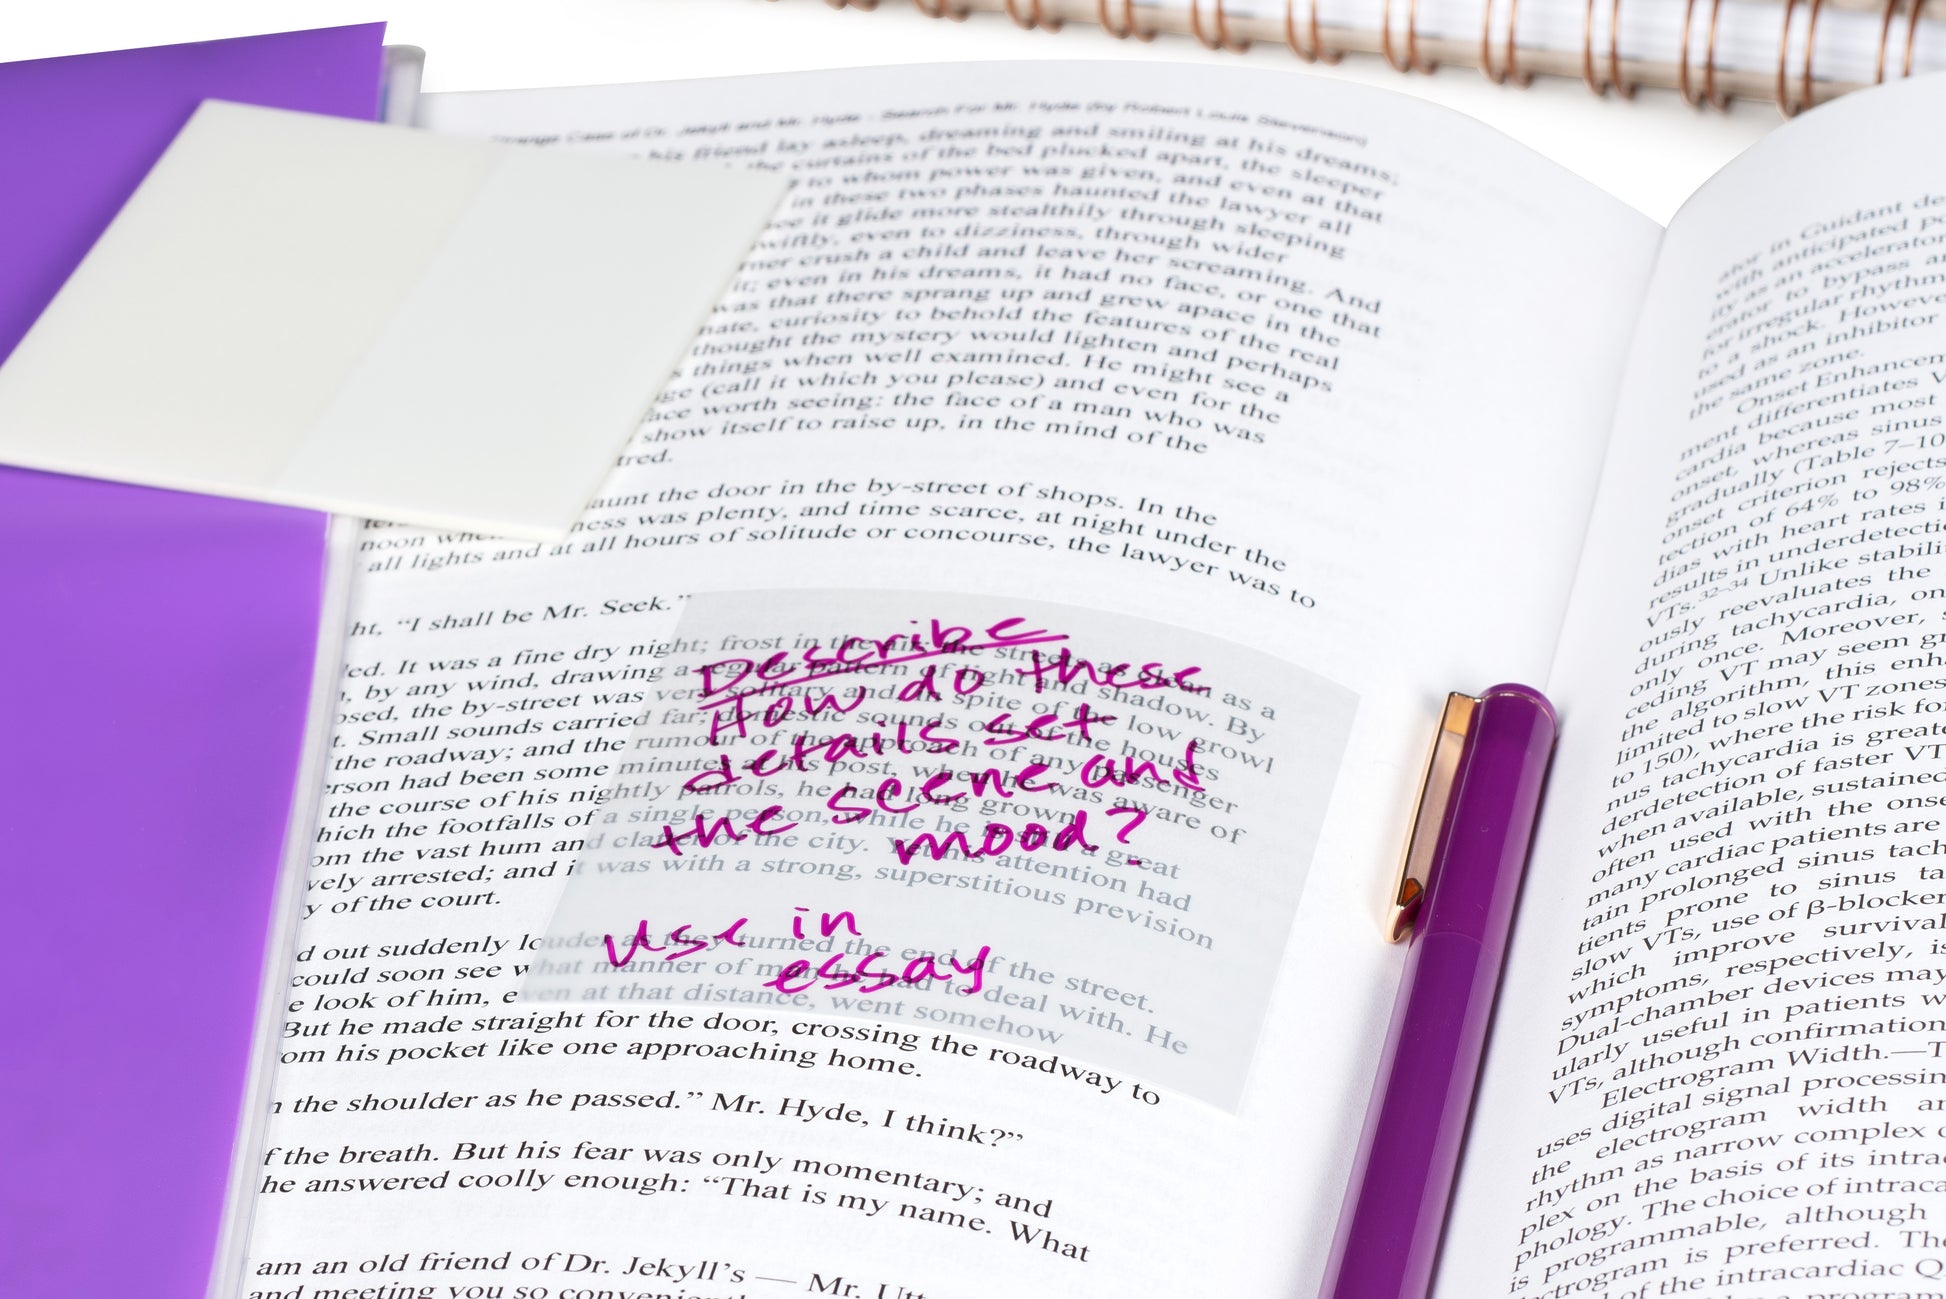 Strange Case of Dr. Jekyll and Mr. Hyde - Search For Mr. Hyde (by Robert Louis Stevenson)
his friend lay asleep, dreaming and smiling at his dreams;
the curtains of the bed plucked apart, the sleeper
to whom power was given, and even at that
in these two phases haunted the lawyer all
it glide more stealthily through sleeping
swiftly, even to dizziness, through wider
crush a child and leave her screaming. And
it; even in his dreams, it had no face, or one that
was that there sprang up and grew apace in the
curiosity to behold the features of the real
thought the mystery would lighten and perhaps
things when well examined. He might see a
(call it which you please) and even for the
face worth seeing: the face of a man who was
show itself to raise up, in the mind of the
aunt the door in the by-street of shops. In the
ness was plenty, and time scarce, at night under the
noon when
all lights and at all hours of solitude or concourse, the lawyer was to
ht, “I shall be Mr. Seek.”
ed. It was a fine dry night; frost in the air; the streets as clean as a
by any wind, drawing a regular pattern of light and shadow. By
osed, the by-street was very solitary and in spite of the low growl
t. Small sounds carried far; domestic sounds out of the houses
the roadway; and the rumour of the approach of any passenger
erson had been some minutes at his post, when he was aware of
the course of his nightly patrols, he had long grown
hich the footfalls of a single person, while he is still a great
om the vast hum and clatter of the city. Yet his attention had
vely arrested; and it was with a strong, superstitious prevision
y of the court.
d out suddenly louder as they turned the end of the street.
could soon see what manner of man he had to deal with. He
e look of him, even at that distance, went somehow
But he made straight for the door, crossing the roadway to
om his pocket like one approaching home.
n the shoulder as he passed.” Mr. Hyde, I think?”
f the breath. But his fear was only momentary; and
he answered coolly enough: “That is my name. What
am an old friend of Dr. Jekyll’s — Mr. Utt
and meeting you so convenient
Describe
How do these
details set
the scene and
mood?
Use in
essay
ator in Guidant de
with anticipated
ity as an accelerator
erator to bypass
for irregular rhythm
to a shock. However
used as an inhibitor
the same zone.
Onset Enhancem
ment differentiates V
cardia because most
onset, whereas sinus
gradually (Table 7–10
onset criterion rejects
tection of 64% to 98%
dias with heart rates i
results in underdetecti
VTs.32–34 Unlike stabili
ously reevaluates the
during tachycardia, on
only once. Moreover,
ceding VT may seem gr
the algorithm, this enh
limited to slow VT zones
to 150), where the risk fo
nus tachycardia is greate
derdetection of faster VT
when available, sustained
often used with the onse
many cardiac patients are
tain prolonged sinus tach
tients prone to sinus ta
slow VTs, use of β-blocker
which improve survival
symptoms, respectively, is
Dual-chamber devices may
ularly useful in patients w
VTs, although confirmation
Electrogram Width.—T
uses digital signal processin
the electrogram width an
rhythm as narrow complex o
plex on the basis of its intra
phology. The choice of intraca
is programmable, although
ctrogram is preferred. The
of the intracardiac Q